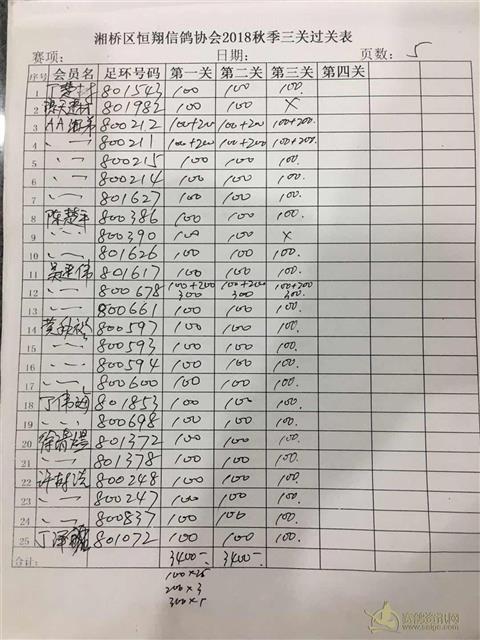 湘桥区恒翔信鸽协会2018秋季三关过关表
赛项: 日期: 页数: 5
序号 会员名 足环号码 第一关 第二关 第三关 第四关
1 801543 100 100 100.
2 801982 100 100 ×
3 800212 100+200 100+200 100+200.
4 〃 800211 100+200 100+200 100+200.
5 〃 800215 100 100 100.
6 〃 800214 100 100 100.
7 〃 801627 100 100 100.
8 陈楚平 800386 100 100 100.
9 〃 800390 100 100 ×
10 〃 801626 100 100 100.
11 吴平伟 801617 100 100 100.
12 〃 800678 100+200 300 100+200 300 100+200 300.
13 〃 800661 100 100 100.
14 800597 100 100 100.
15 〃 800593 100 100 100.
16 〃 800594 100 100 100.
17 〃 800600 100 100 100.
18 丁伟 801853 100 100 100.
19 〃 800698 100 100 100.
20 801372 100 100 100.
21 〃 801378 100 100 100.
22 800248 100 100 100.
23 〃 800247 100 100 100.
24 〃 800837 100 100 100.
25 801072 100 100 100.
合计: 3400- 3400-
100×25
200×3
300×1
赛鸽资讯网